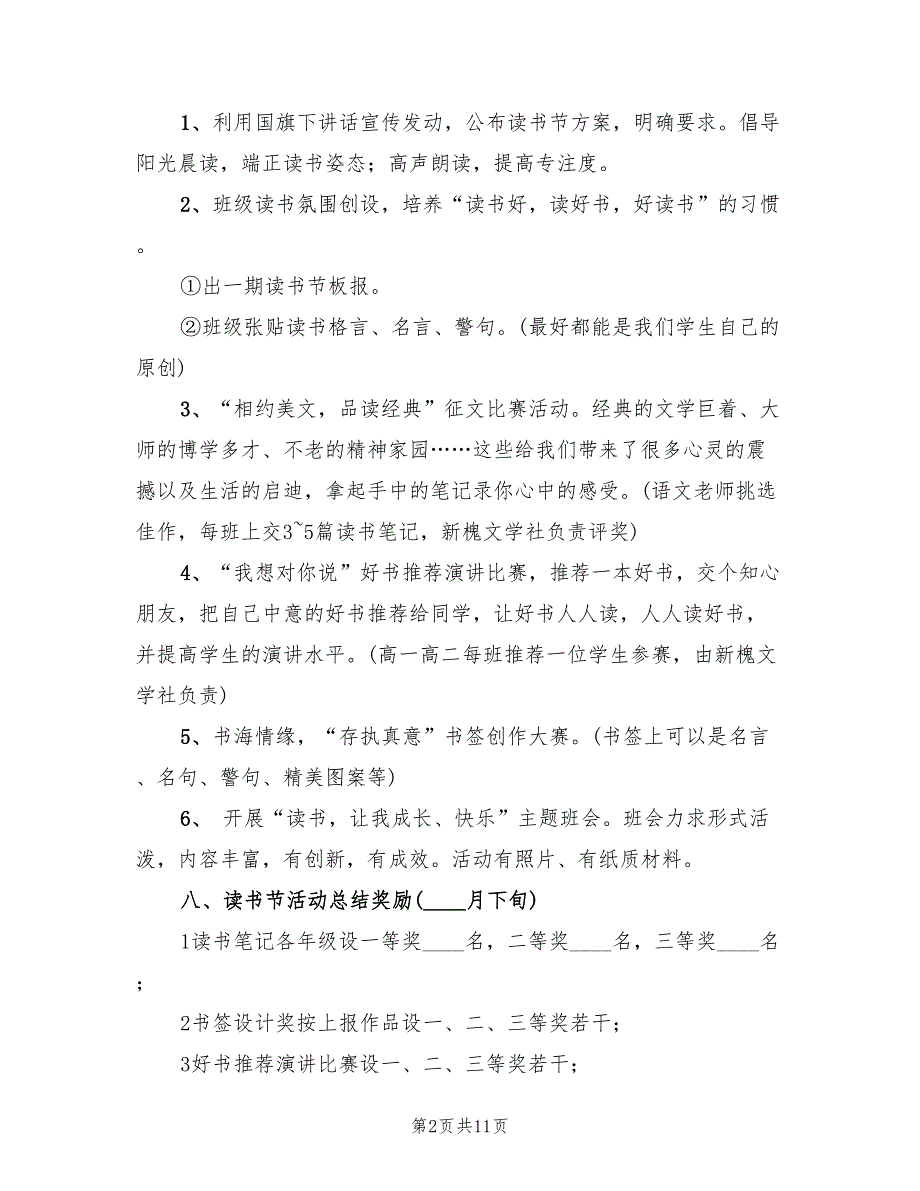 1、利用国旗下讲话宣传发动，公布读书节方案，明确要求。倡导
阳光晨读，端正读书姿态；高声朗读，提高专注度。
2、班级读书氛围创设，培养“读书好，读好书，好读书”的习惯
。
①出一期读书节板报。
②班级张贴读书格言、名言、警句。(最好都能是我们学生自己的
原创)
3、“相约美文，品读经典”征文比赛活动。经典的文学巨着、大
师的博学多才、不老的精神家园……这些给我们带来了很多心灵的震
撼以及生活的启迪，拿起手中的笔记录你心中的感受。(语文老师挑选
佳作，每班上交3~5篇读书笔记，新槐文学社负责评奖)
4、“我想对你说”好书推荐演讲比赛，推荐一本好书，交个知心
朋友，把自己中意的好书推荐给同学，让好书人人读，人人读好书，
并提高学生的演讲水平。(高一高二每班推荐一位学生参赛，由新槐文
学社负责)
5、书海情缘，“存执真意”书签创作大赛。(书签上可以是名言
、名句、警句、精美图案等)
6、 开展“读书，让我成长、快乐”主题班会。班会力求形式活
泼，内容丰富，有创新，有成效。活动有照片、有纸质材料。
八、读书节活动总结奖励(____月下旬)
1读书笔记各年级设一等奖____名，二等奖____名，三等奖____名
；
2书签设计奖按上报作品设一、二、三等奖若干；
3好书推荐演讲比赛设一、二、三等奖若干；
第2页共11页